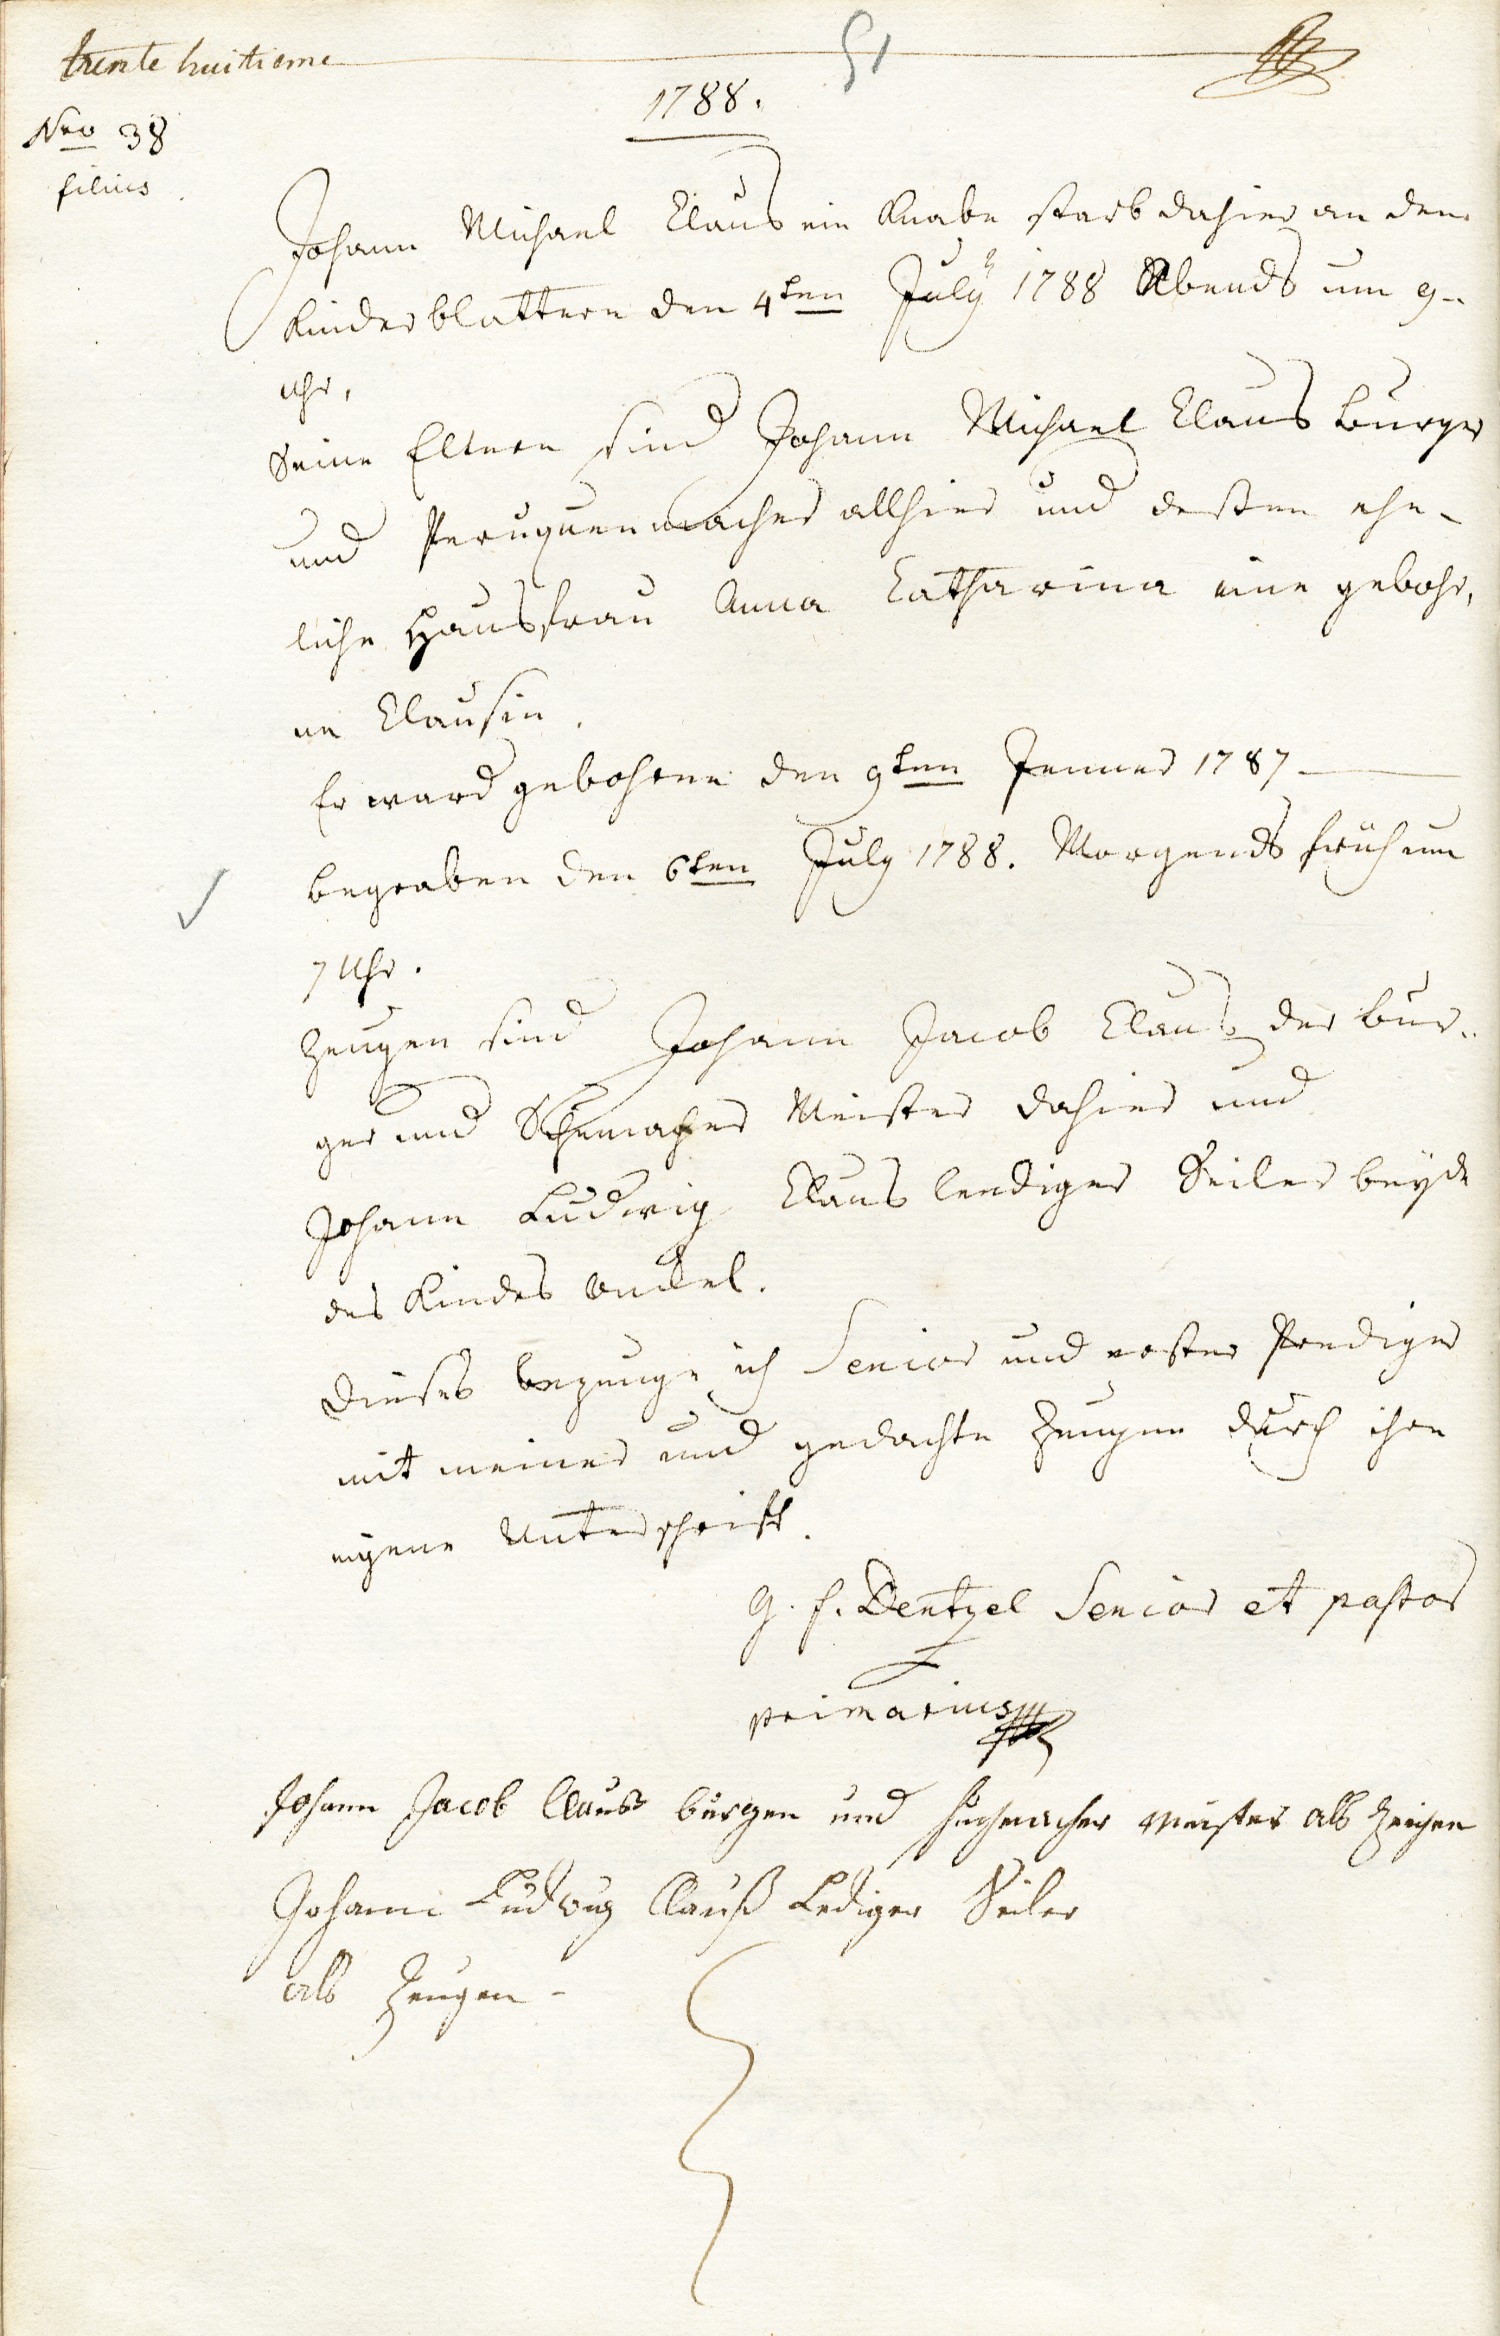 trente huitieme
51
1788.
Nro 38
filius
Johann Michael Claus ein Knabe starb dahier an den
Kinderblattern den 4ten July 1788 Abends um 9
Uhr,
Seine Eltern sind Johann Michael Claus Burger
und Peruquenmacher allhier und dessen ehe-
liche Hausfrau Anna Catharina eine gebohr,
ne Clausin.
Er ward gebohren den 9ten Jenner 1787
begraben den 6ten July 1788. Morgends früh um
7 Uhr.
Zeugen sind Johann Jacob Claus der Bur..
ger und Meister dahier und
Johann Ludwig Claus lediger Seiler beyde
des Kindes Onckel.
Dieses bezeuge ich Senior und erster Prediger
mit meiner und gedachte Zeugen durch ihre
eigene Unterschrifft.
G. F. Dentzel Senior et pastor
primarius
Johann Jacob Clauss burger und meister als Zeigen
Johann Ludwig Clauß Lediger Seiler
als Zeugen -